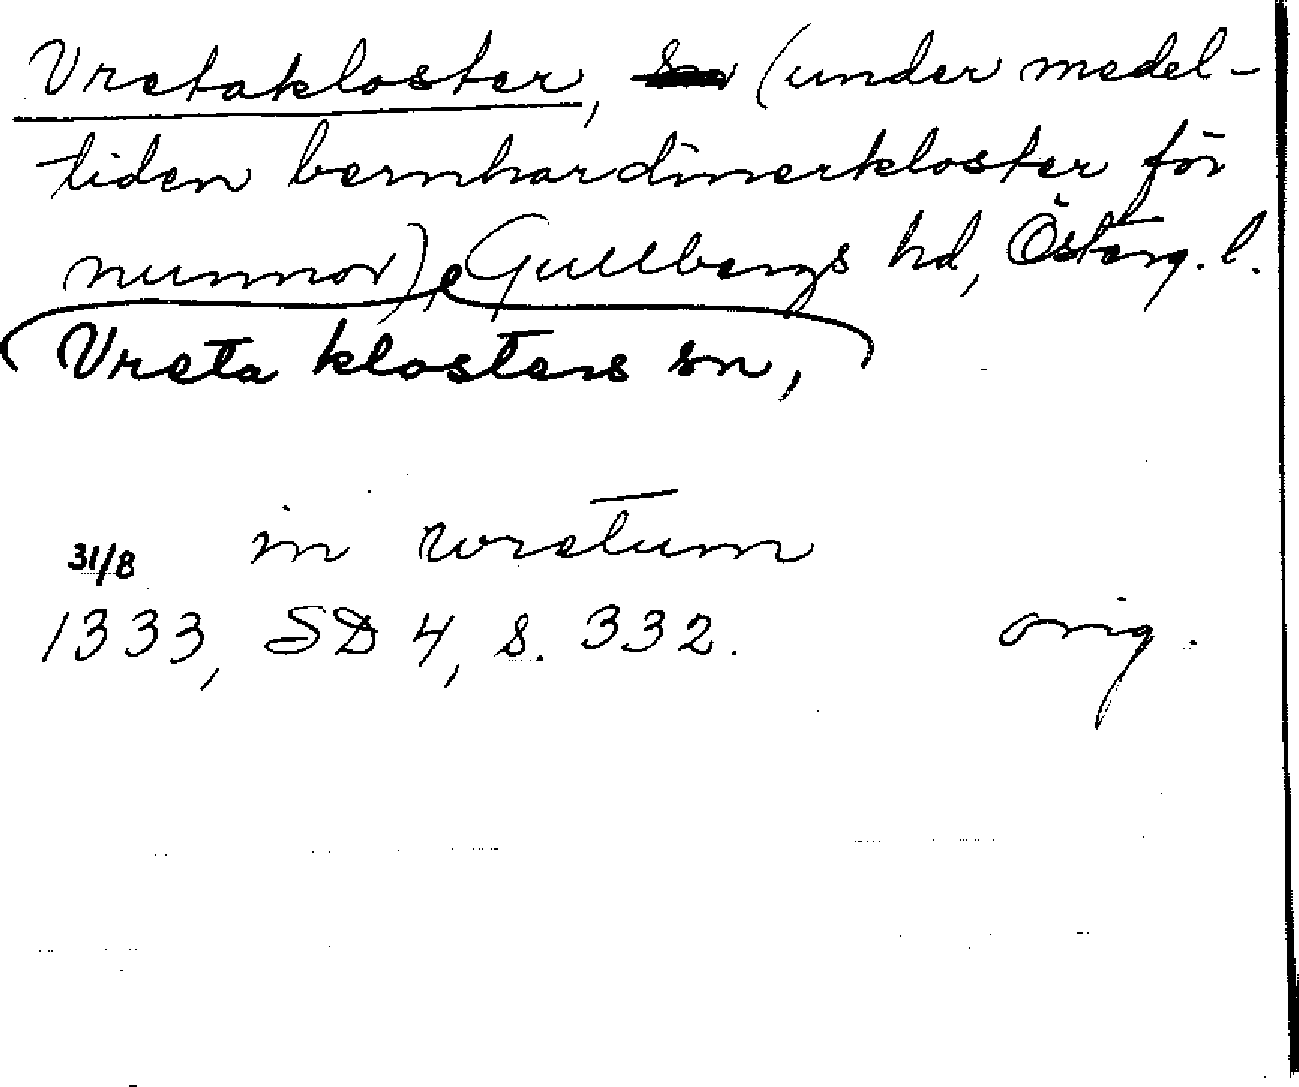 Vretakloster, sn (under medel-
tiden bernhardinerkloster för
nunnor), Gullbergs hd, Österg. l.
Vreta klosters sn,
in wretum
31/8
1333, SD 4, s. 332. orig.